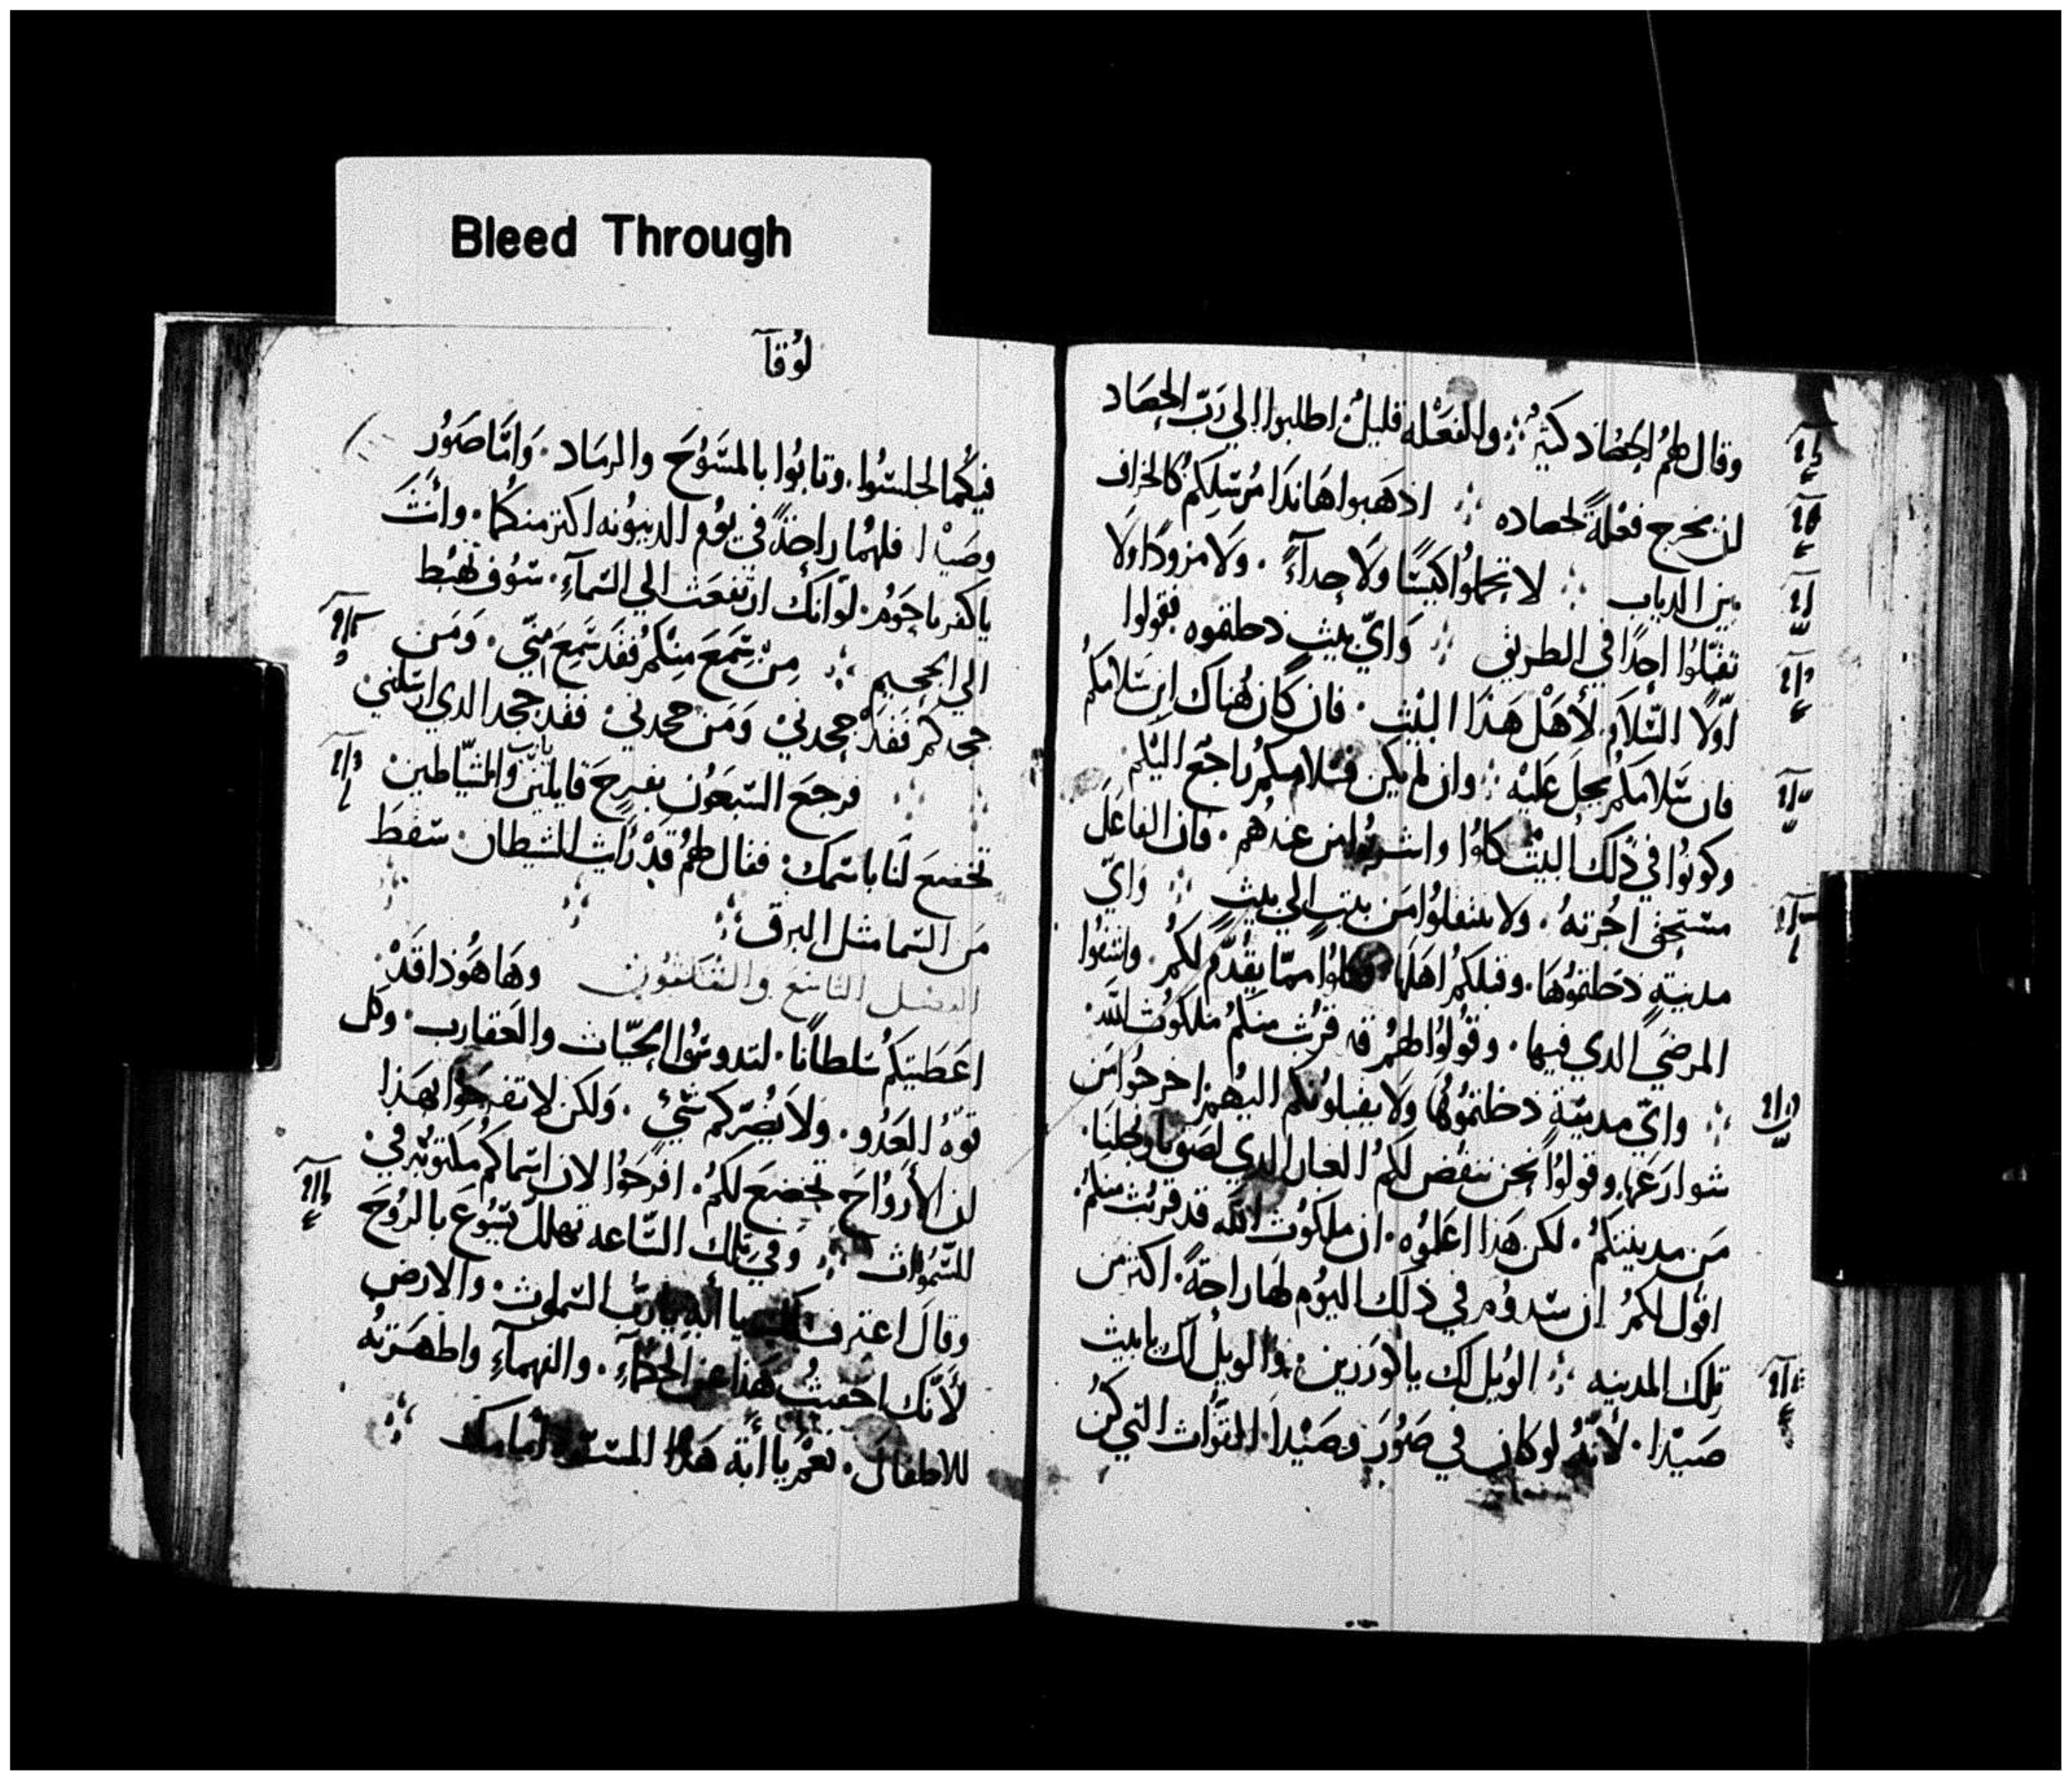 Bleed Through
وقال لهمُ الحصَاد كثيرٌ ؞ والفعَله قليلٌ اطلبوا الي رَبّ الحِصَاد
لان يخرج فعْلةً لحصاده ؞ اذهَبوا هَا نَدَا مُرسَلِكمُ كالخراف
بين الدياب ؞ لا تحملوُا كيسًا ولَا حدآءً . ولَا مزودًا ولَا
تقبّلوُا احدًا في الطريق ؞ وَايّ بيتٍ دخلتموه فقولوا
اوّلًا السّلَامُ لأهْل هَذا البيْت . فان كان هُناك ابن سَلامكمُ
فان سَلامَكم يحلَ عَليْه ؞ وان لم يكن فسَلامكم راجُع اليْكم
وكونوُا في ذَلك البيْت كلوُا واشربوُا من عندهم . فان الفاعَل
مستحق اجُرتهُ . ولا تنتقلوُا مَن بيتٍ الي بيتٍ ؞ وَايّ
مدينةٍ دخلتموُهَا . وقبلكمُ اهلَها فكلوُا ممّا يقُدّم لكمُ . واشفوُا
المرضَي الدي فيها . وقوُلوُا لهمُ قد قرُبت منكمُ ملكوُت اللَّه .
؞ وايّ مدينَةٍ دخلتموُهَا ولَا يقبلونكم اليهم اخرجُوا مَن
شوارعَها وقولوُا نحن ننفض لكمُ الغبار الدي لصَق بارجُلنَا .
مَن مدينتكمُ . لكن هَذا اعَلموُه . ان ملكوُت اللَّه قد قربُت منكمُ .
اقوُل لكمُ ان سَدوُم في ذلك اليوُم لهَا راحَةً . اكثر من
تلك المدينه ؞ الويُل لك يا كورَزين . والويُل لَك يا بيت
صَيْدَا . لأنّهُ لو كان في صَوُرَ وصَيْدَا . القوّات التي كنُ
لوُقآ
فيكُما لجلسُوا . وتابوُا بالمسَوُحَ والرمَاد . وَامّا صَوُر
وصَيْدا فلهُما راحَةً في يوُم الدينوُنه اكثر منكمُا . وانتَ
يا كفرناحَوُم . لوَ انك ارتفعَت الي السَمآءِ . سَوُف تهبُط
الي الجحيم ؞ مِن سَمَعَ مِنْكم فقدَ سَمِعَ منّي . وَمَن
جحدكم فقدَ جحَدنيْ وَمَن جحدنيْ . فقد جحد الدي ارسَلنيْ
؞ فرجعَ السَبعَوُن بفرحَ قايليَن يارب والشيّاطين
تخضعَ لنَا باسَمك . فقال لهمُ قدْ رَأيت الشيطان سَقطَ
مَن السَما مثل البرق ؞
الفصل التاسَع والثلثوُن وهَا هَوُذا قَدْ
اعَطَيتكمُ سَلطانًا . لتدوسُوا الحيّات والعَقارب . وكل
قوّهُ العَدُو . ولَا يضُرّكم شئٍ . وَلكن لا تفرحَوُا بهَذا
لان الأرَوُاحَ تخضعَ لكمُ . افرحَوُا لان اسَماكمُ مكتوُبه في
السَمَوُات ؞ وَفي تلك السَاعه تهلل يَسُوعَ بالروُحَ
وقالَ اعترف لك يا ابه يا ربّ السَموات . والارض
لأنّك اخفيتُ هَذا عن الحكمآءِ . والفهمآءِ واظهَرتهُ
للاطفالَ . نعمْ يا ابَه هَذا المسَرّه أمامك ؞